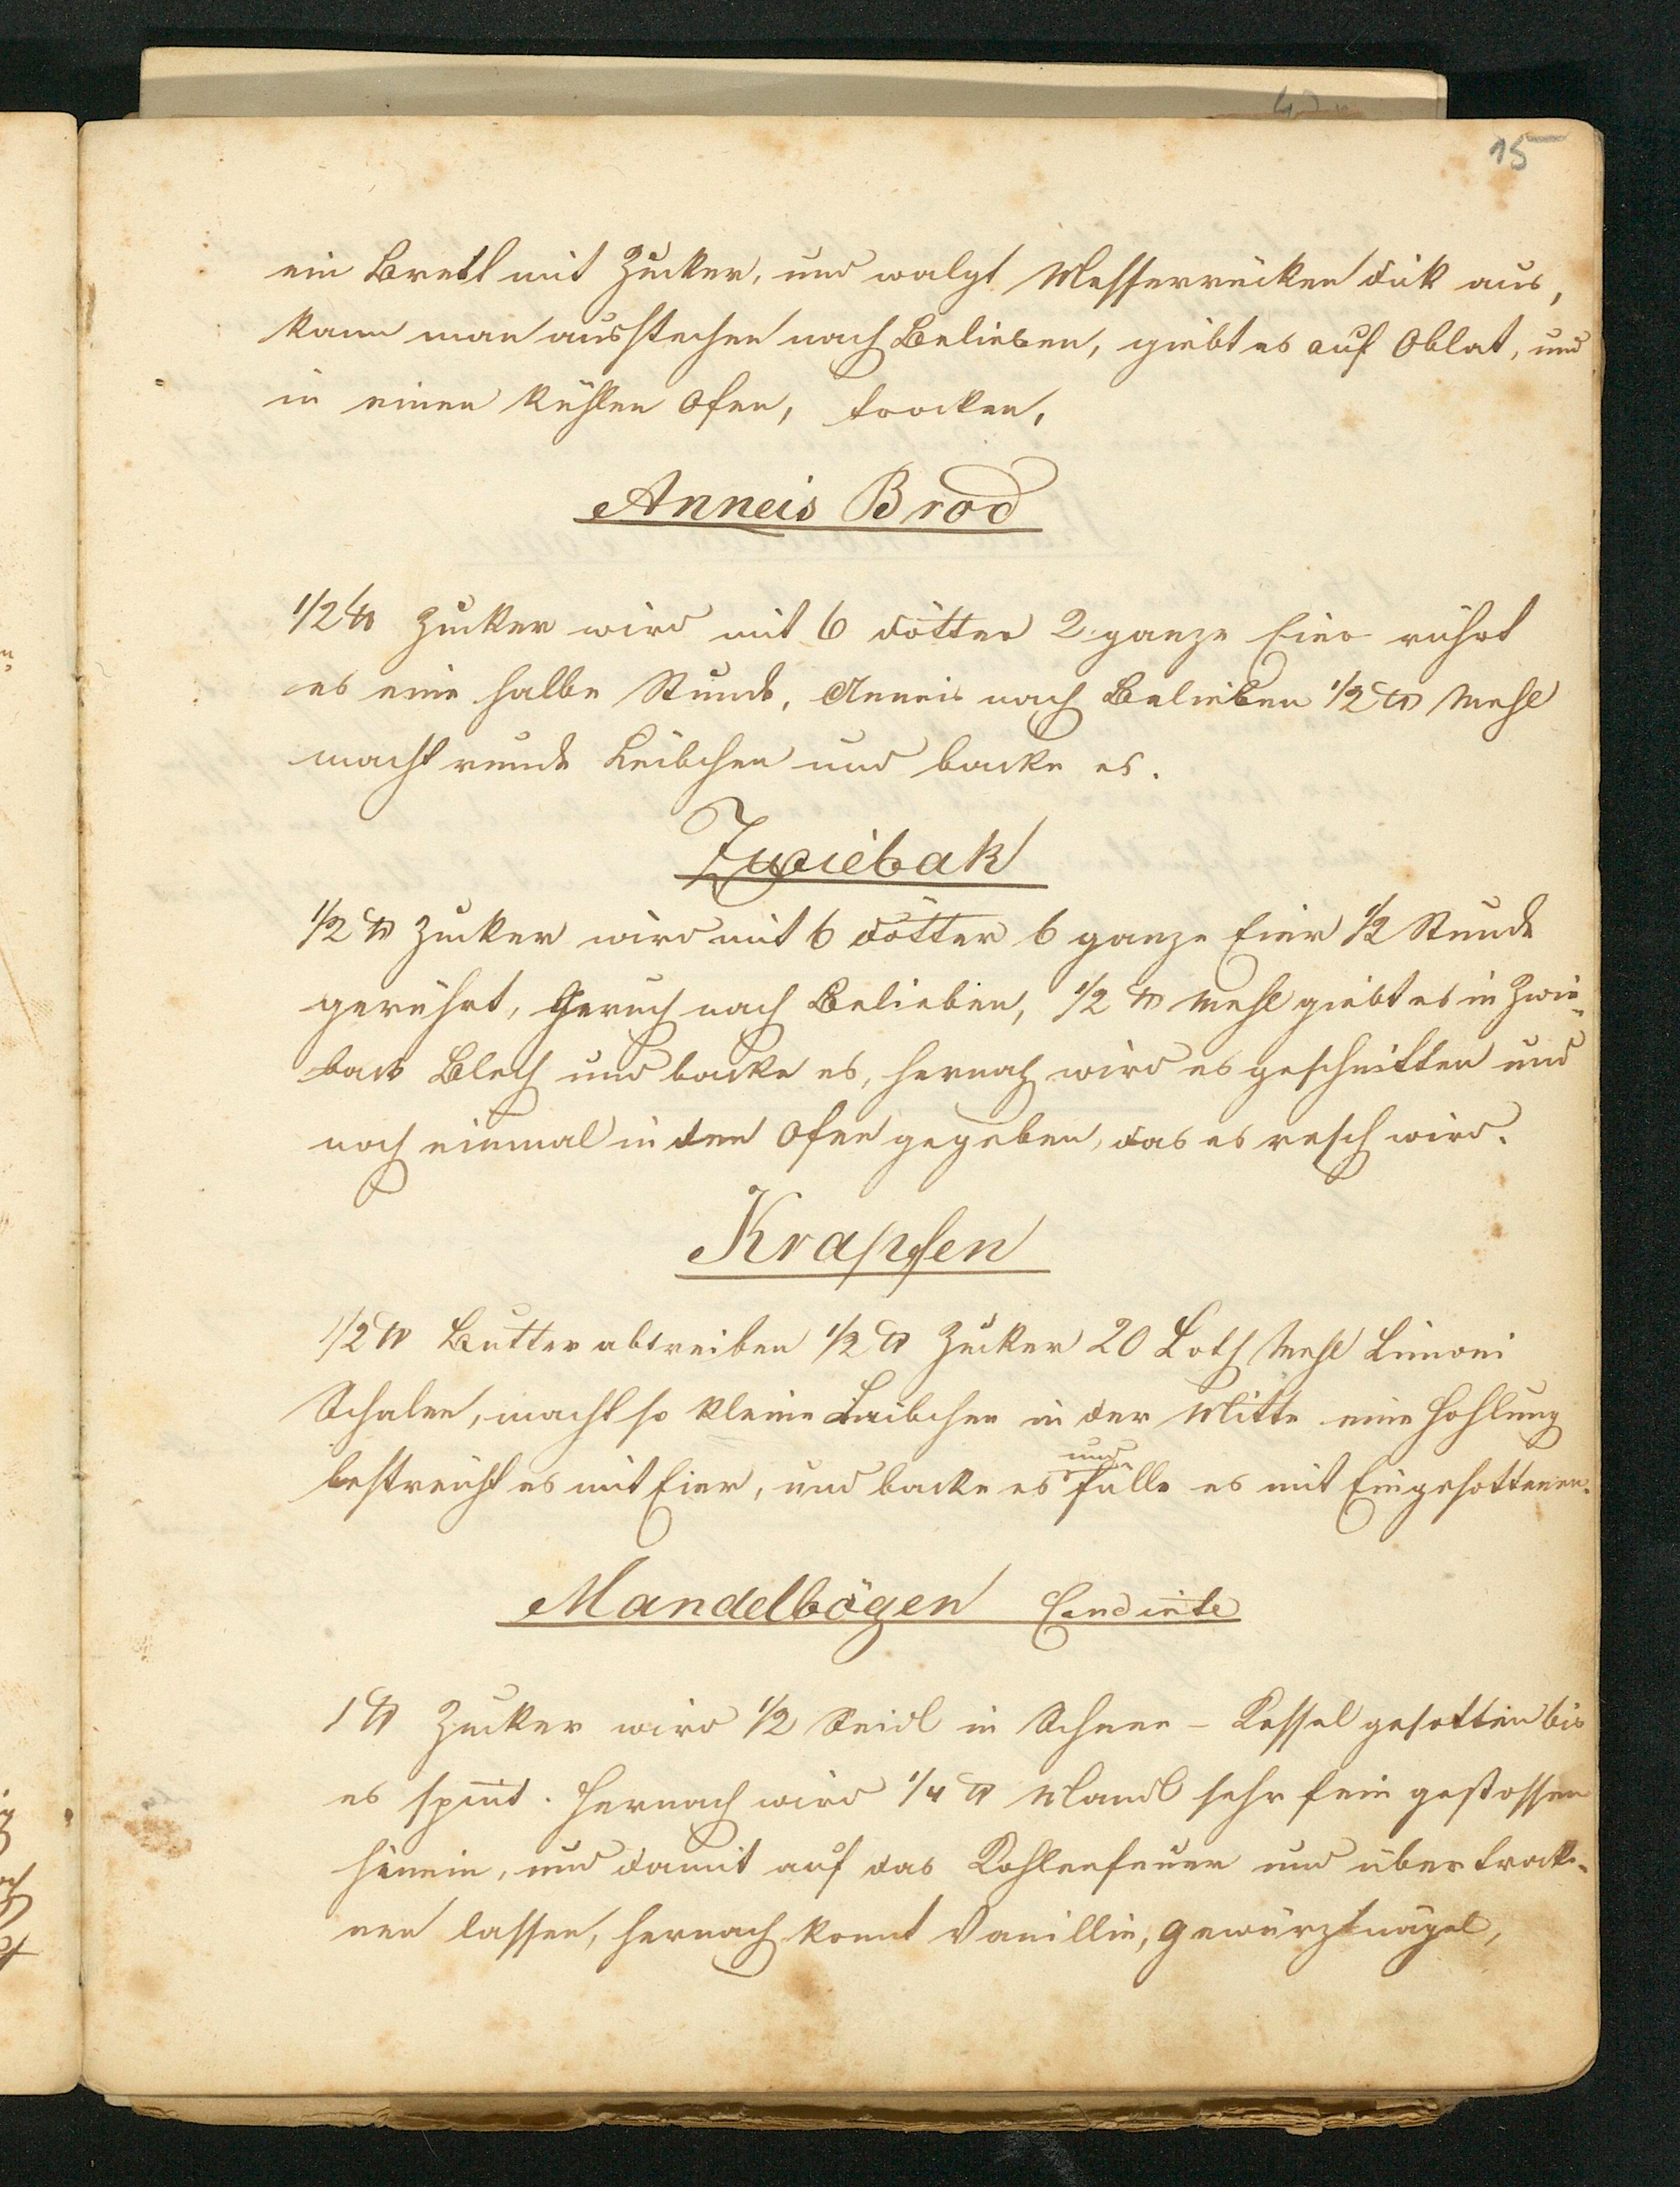 15
ein Brett mit Zucker, und walgt Messerrücken dick aus,
kann man ausstechen nach Belieben, giebt es auf Oblat, und
in einen kühlen Ofen, trocken,
Anneis Brod
1/2 ℔ Zucker wird mit 6 Dötter 2 ganze Eier rührt
es eine halbe Stunde, Anneis nach Belieben 1/2 ℔ Mehl
macht runde Leibchen und backe es.
Zwiebak
1/2 ℔ Zucker wird mit 6 Dötter 6 ganze Eier 1/2 Stunde
gerührt, Geruch nach Belieben, 1/2 ℔ Mehl giebt es in Zwie-
back Blech und backe es, hernach wird es geschnitten und
noch einmal in den Ofen gegeben, das es resch wird.
Krapfen
1/2 ℔ Butter abtreiben 1/2 ℔ Zucker 20 Loth Mehl Limoni
Schalen, macht so kleine Laibchen in der Mitte eine Hohlung
bestreicht es mit Eier, und backe es und fülle es mit Eingesottenen.
Mandelbögen Candirte
1 ℔ Zucker wird 1/2 Seidl in Schnee-Kessel gesotten bis
es spinnt. Hernach wird 1/4 ℔ Mandl sehr fein gestossen
hinein, und damit auf das Kohlenfeuer und über trock-
nen lassen, hernach komt Vanillin, Gewürznägel,